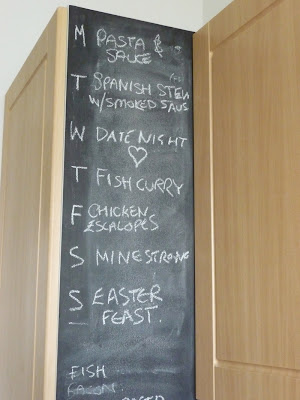 M PASTA &
SAUCE
T SPANISH STEW
W/SMOKED SAUS
W DATE NIGHT
T FISH CURRY
F CHICKEN
ESCALOPES
S MINESTRONE
S EASTER
FEAST.
FISH
BACON